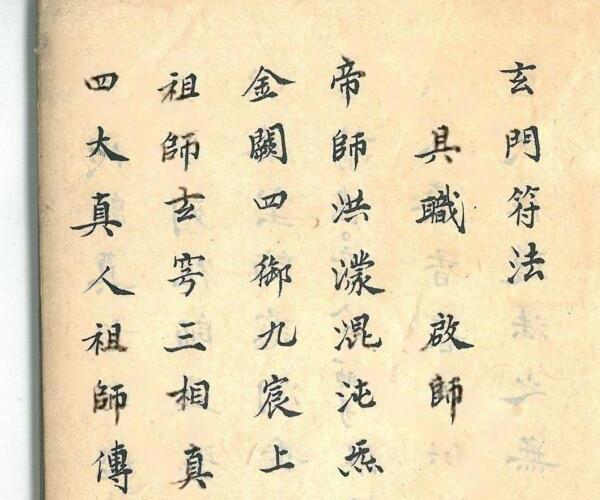 玄門符法
具職 啟師
帝師洪濛混沌炁
金闕四御九宸上
祖師玄穹三相真
四大真人祖師傳